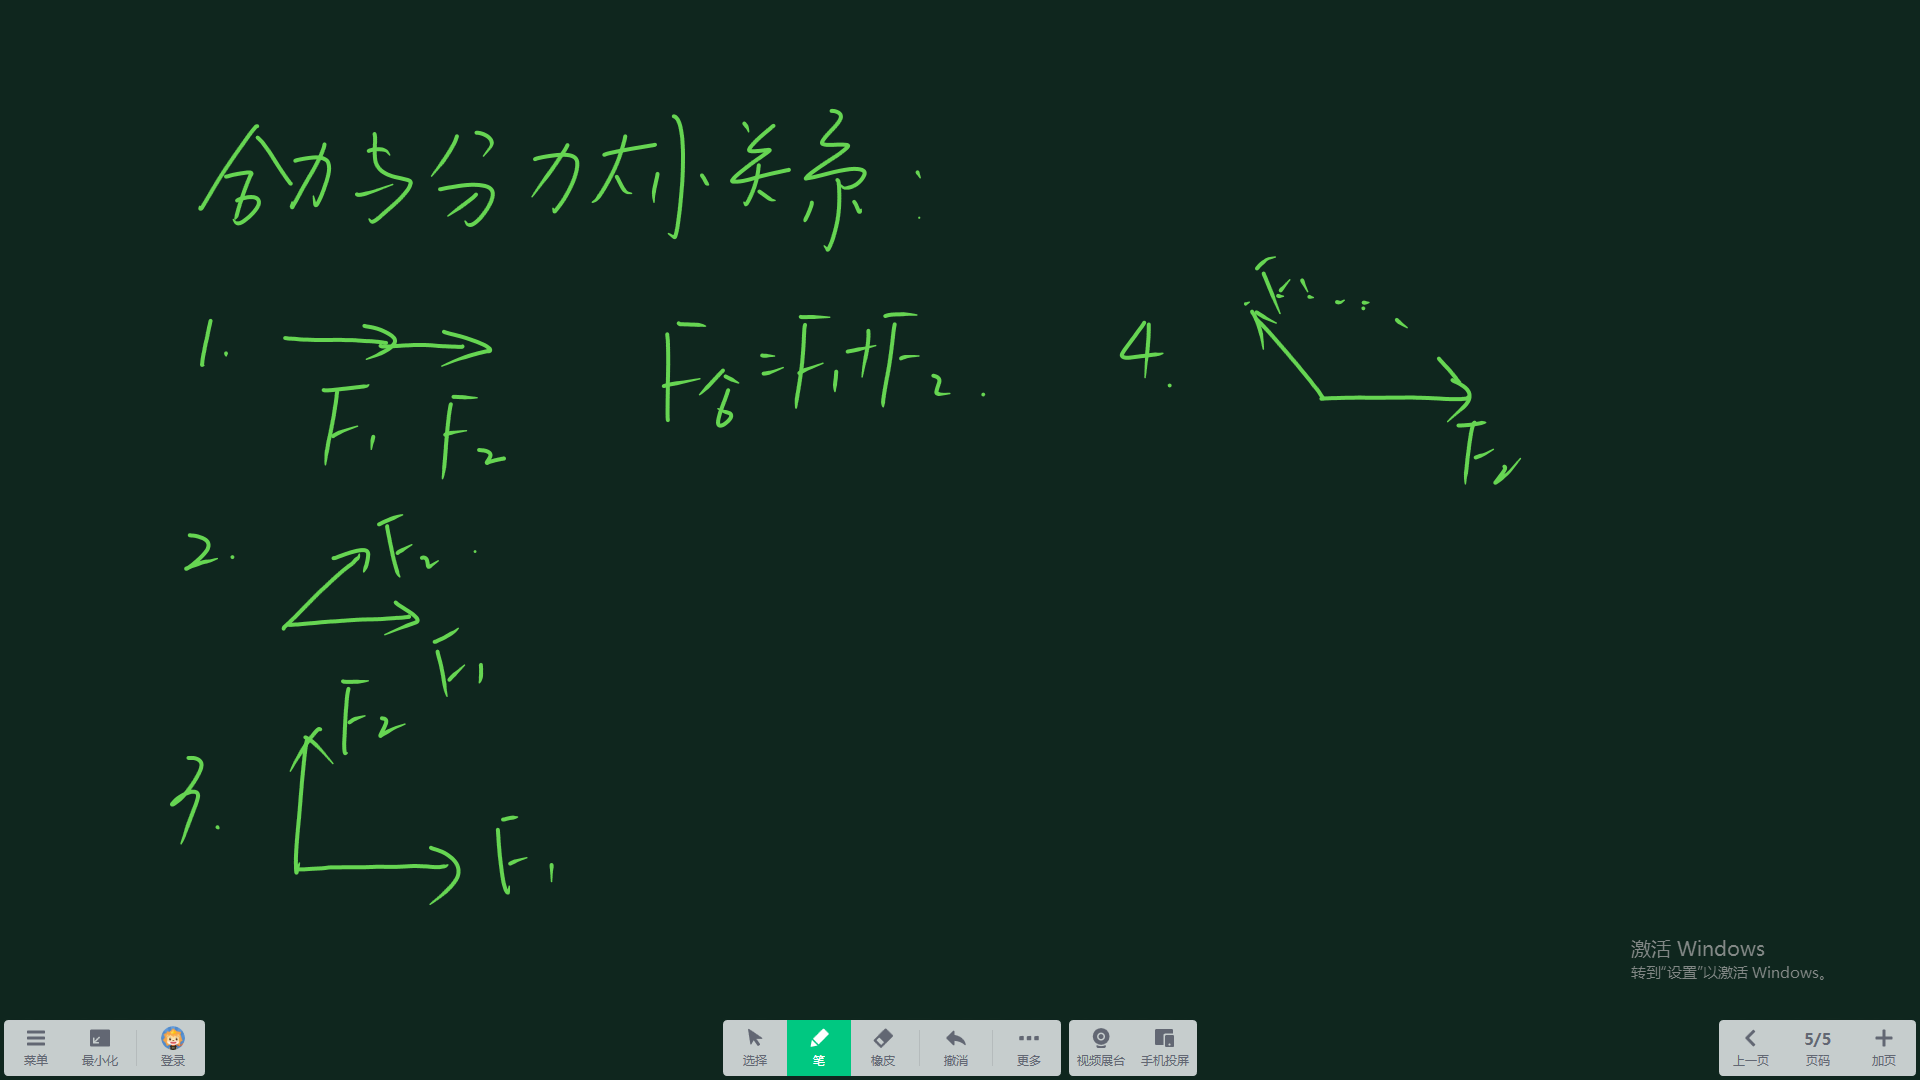 合力与分力大小关系：
1. F1 F2 F合=F1+F2.
2. F2 F1
3. F2 F1
4. F1 F2
激活 Windows
转到“设置”以激活 Windows。
菜单 最小化 登录 选择 笔 橡皮 撤消 更多 视频展台 手机投屏 上一页 5/5 页码 加页